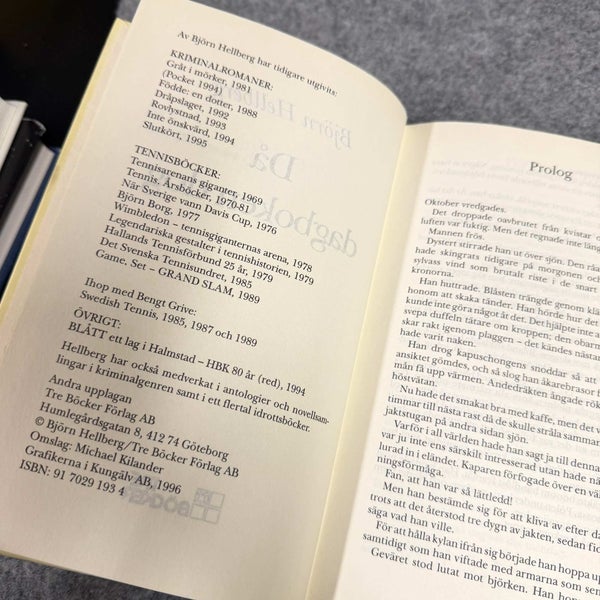 Av Björn Hellberg har tidigare utgivits:
KRIMINALROMANER:
Gråt i mörker, 1981
(Pocket 1994)
Födde: en dotter, 1988
Dråpslaget, 1992
Rovlystnad, 1993
Inte önskvärd, 1994
Slutkört, 1995
TENNISBÖCKER:
Tennisarenans giganter, 1969
Tennis. Årsböcker, 1970-81
När Sverige vann Davis Cup, 1976
Björn Borg, 1977
Wimbledon – tennisgiganternas arena, 1978
Legendariska gestalter i tennishistorien, 1979
Hallands Tennisförbund 25 år, 1979
Det Svenska Tennisundret, 1985
Game, Set – GRAND SLAM, 1989
Ihop med Bengt Grive:
Swedish Tennis, 1985, 1987 och 1989
ÖVRIGT:
BLÅTT ett lag i Halmstad – HBK 80 år (red), 1994
Hellberg har också medverkat i antologier och novellsam-
lingar i kriminalgenren samt i ett flertal idrottsböcker.
Andra upplagan
Tre Böcker Förlag AB
Humlegårdsgatan 8, 412 74 Göteborg
© Björn Hellberg/Tre Böcker Förlag AB
Omslag: Michael Kilander
Grafikerna i Kungälv AB, 1996
ISBN: 91 7029 193 4
Prolog
Oktober vredgades.
Det droppade oavbrutet från kvistar o
luften var fuktig. Men det regnade inte läng
Mannen frös.
Dystert stirrade han ut över sjön. Den råa
hade skingrats tidigare på morgonen och
sylvass vind som brutalt riste i de snart
kronorna.
Han huttrade. Blåsten trängde genom klä
honom att skaka tänder. Han hörde hur det
kunde inte göra något åt det. Det hjälpte inte a
svepa duffeln tätare om kroppen; den obarm
skar rakt igenom plaggen – det kändes nästan
hade varit naken.
Han drog kapuschongens snoddar så att
ansiktet gömdes, och så slog han åkarebrasor f
mån få upp värmen. Andedräkten ångade rökt
höstvätan.
Nu hade det smakat bra med kaffe, men det v
timmar till nästa rast då de skulle stråla samman
jaktstugan på andra sidan sjön.
Varför i all världen hade han sagt ja till denna
var ju inte ens särskilt intresserad utan hade nä
lurad in i eländet. Kaparen förfogade över en väl
ningsförmåga.
Fan, att han var så lättledd!
Men han bestämde sig för att kliva av efter da
trots att det återstod tre dygn av jakten, sedan fic
säga vad han ville.
För att hålla kylan ifrån sig började han hoppa up
samtidigt som han viftade med armarna som sen
Geväret stod lutat mot björken. Han h